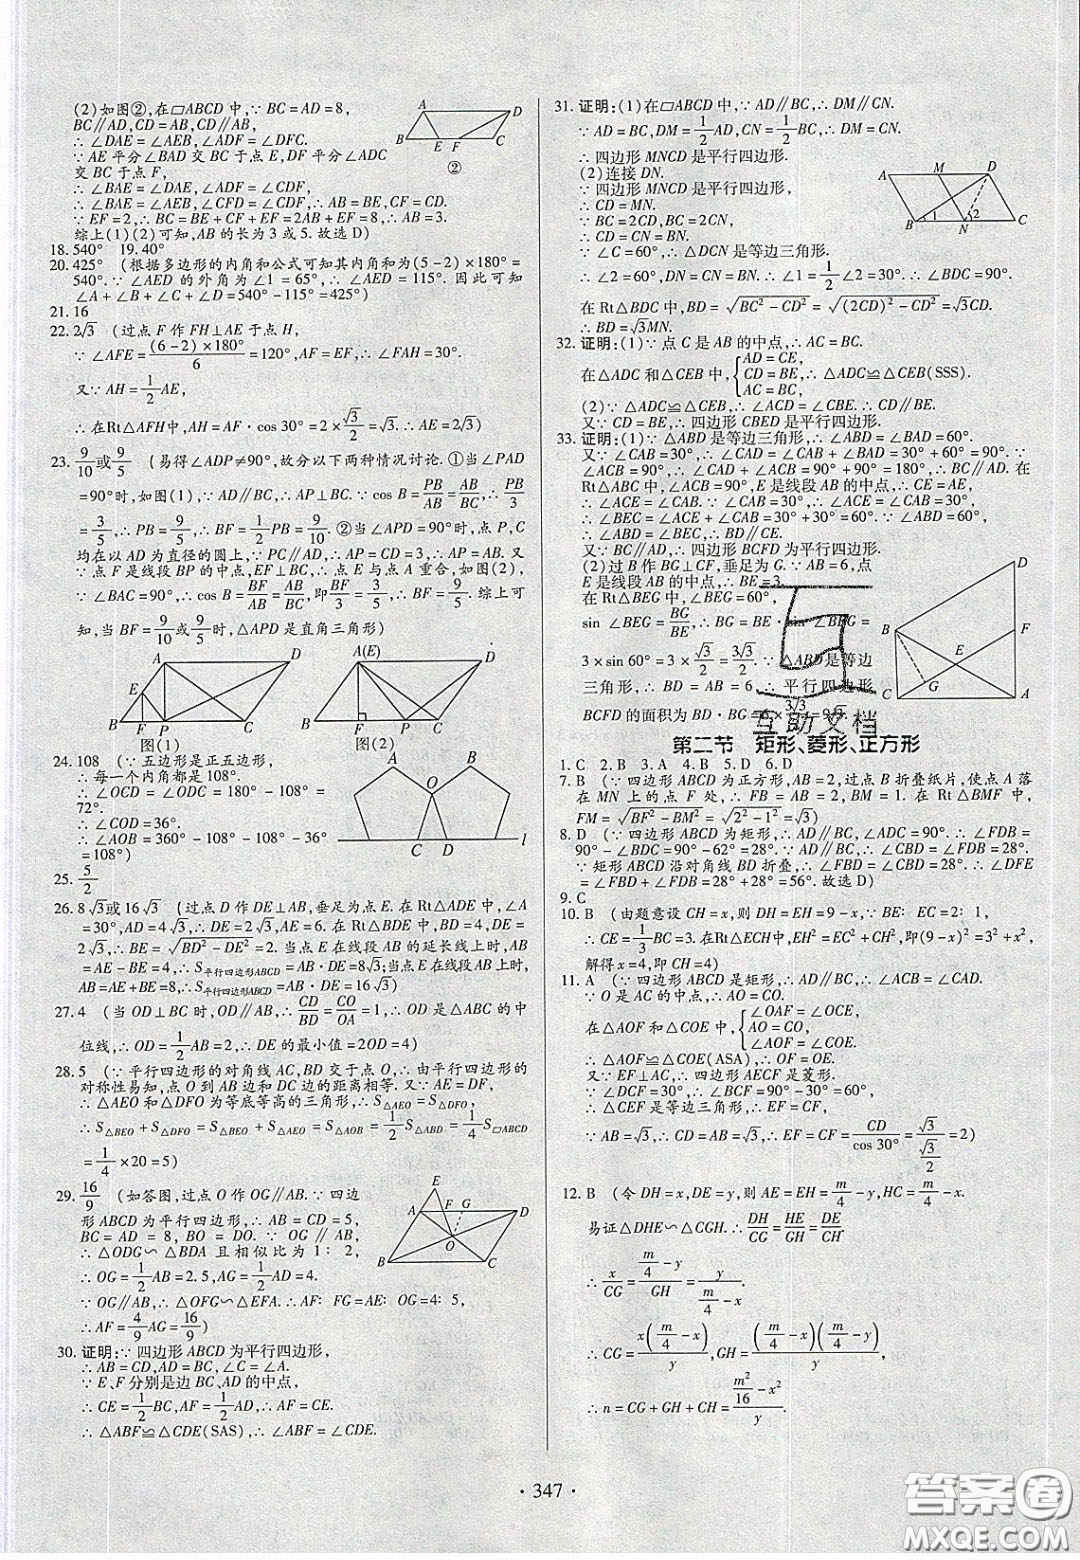 (2)如图②,在▱ABCD中,∵BC=AD=8,
BC∥AD,CD=AB,CD∥AB,
∴∠DAE=∠AEB,∠ADF=∠DFC.
∵AE平分∠BAD交BC于点E,DF平分∠ADC
交BC于点F,
∴∠BAE=∠DAE,∠ADF=∠CDF,
∴∠BAE=∠AEB,∠CFD=∠CDF,
∴AB=BE,CF=CD,∴AB=BE=CF=CD.
∵EF=2,∴BC=BE+CF+EF=2AB+EF=8,∴AB=3.
综上(1)(2)可知,AB的长为3或5.故选D)
A D B E F C
②
18.540° 19.40°
20.425° (根据多边形的内角和公式可知其内角和为(5-2)×180°=
540°.∵∠AED的外角为∠1=65°,∴∠AED=115°.因此可知
∠A+∠B+∠C+∠D=540°-115°=425°)
21.16
22.2√3 (过点F作FH⊥AE于点H,
∵∠AFE=(6-2)×180°/6=120°,AF=EF,∴∠FAH=30°.
又∵AH=1/2AE,
∴在Rt△AFH中,AH=AF·cos 30°=2×√3/2=√3,∴AE=2√3)
23.9/10或9/5 (易得∠ADP≠90°,故分以下两种情况讨论.①当∠PAD
=90°时,如图(1),∵AD∥BC,∴AP⊥BC.∵cos B=PB/AB=AB/BC,∴PB/3
=3/5,∴PB=9/5,∴BF=1/2PB=9/10.②当∠APD=90°时,点P,C
均在以AD为直径的圆上,∵PC∥AD,∴AP=CD=3,∴AB=AP.又
∵点F是线段BP的中点,∴EF⊥BP,∴点E与点A重合,如图(2),
∵∠BAC=90°,∴cos B=BF/AB=AB/BC,即BF/3=3/5,∴BF=9/5.综上可
知,当BF=9/10或9/5时,△APD是直角三角形)
A D E B F P C
图(1)
A(E) D B F P C
图(2)
24.108 (∵五边形是正五边形,
∴每一个内角都是108°.
∴∠OCD=∠ODC=180°-108°=
72°.
∴∠COD=36°.
∴∠AOB=360°-108°-108°-36°
=108°)
A B O C D l
25.5/2
26.8√3或16√3 (过点D作DE⊥AB,垂足为点E.在Rt△ADE中,∠A
=30°,AD=4√3,∴DE=2√3,AE=6.在Rt△BDE中,BD=4,DE=
2√3,∴BE=√(BD²-DE²)=2.当点E在线段AB的延长线上时,AB
=AE-BE=4,∴S平行四边形ABCD=AB·DE=8√3;当点E在线段AB上时,
AB=AE+BE=8,∴S平行四边形ABCD=AB·DE=16√3)
27.4 (当OD⊥BC时,OD∥AB,∴CD/BD=CO/OA=1,∴OD是△ABC的中
位线,∴OD=1/2AB=2,∴DE的最小值=2OD=4)
28.5 (∵平行四边形的对角线AC,BD交于点O,∴由平行四边形的
对称性易知,点O到AB边和DC边的距离相等.又∵AE=DF,
∴△AEO和△DFO为等底等高的三角形,∴S△AEO=S△DFO,
∴S△BEO+S△DFO=S△BEO+S△AEO=S△AOB=1/2S△ABD=1/4S▱ABCD
=1/4×20=5)
29.16/9 (如答图,过点O作OG∥AB.∵四边
形ABCD为平行四边形,∴AB=CD=5,
BC=AD=8,BO=DO.∵OG∥AB,
∴△ODG∽△BDA且相似比为1:2,
∴OG=1/2AB=2.5,AG=1/2AD=4.
∵OG∥AB,∴△OFG∽△EFA.∴AF:FG=AE:OG=4:5,
∴AF=4/9AG=16/9)
E A F G D O B C
30.证明:∵四边形ABCD为平行四边形,
∴AB=CD,AD=BC,∠C=∠A.
∵E、F分别是边BC、AD的中点,
∴CE=1/2BC,AF=1/2AD,∴CE=AF,
∴△ABF≌△CDE(SAS),∴∠ABF=∠CDE.
31.证明:(1)在▱ABCD中,∵AD∥BC,∴DM∥CN.
∵AD=BC,DM=1/2AD,CN=1/2BC,∴DM=CN.
∴四边形MNCD是平行四边形.
(2)连接DN.
∵四边形MNCD是平行四边形,
∴CD=MN.
∵BC=2CD,BC=2CN,
∴CD=CN=BN.
∵∠C=60°,∴△DCN是等边三角形,
∴∠2=60°,DN=CN=BN.∴∠1=1/2∠2=30°,∴∠BDC=90°.
在Rt△BDC中,BD=√(BC²-CD²)=√((2CD)²-CD²)=√3CD.
∴BD=√3MN.
A M D B 1 2 N C
32.证明:(1)∵点C是AB的中点,∴AC=BC.
在△ADC和△CEB中,{AD=CE, CD=BE, AC=BC, ∴△ADC≌△CEB(SSS).
(2)∵△ADC≌△CEB,∴∠ACD=∠CBE.∴CD∥BE.
又∵CD=BE,∴四边形CBED是平行四边形.
33.证明:(1)∵△ABD是等边三角形,∴∠ABD=∠BAD=60°.
又∵∠CAB=30°,∴∠CAD=∠CAB+∠BAD=30°+60°=90°.
∵∠ACB=90°,∴∠CAD+∠ACB=90°+90°=180°,∴BC∥AD.在
Rt△ABC中,∠ACB=90°,E是线段AB的中点,∴CE=AE,
∴∠ACE=∠CAB.∵∠CAB=30°,∴∠ACE=∠CAB=30°,
∴∠BEC=∠ACE+∠CAE=30°+30°=60°.∵∠ABD=60°,
∴∠ABD=∠BEC,∴BD∥CE.
又∵BC∥AD,∴四边形BCFD为平行四边形.
(2)过B作BG⊥CF,垂足为G.∵AB=6,点
E是线段AB的中点,∴BE=3.
在Rt△BEG中,∠BEG=60°,
sin ∠BEG=BG/BE,∴BG=BE·sin ∠BEG=
3×sin 60°=3×√3/2=3√3/2.∵△ABD是等边
三角形,∴BD=AB=6,∴平行四边形
BCFD的面积为BD·BG=
D B F E C G A
互助文档
第二节 矩形、菱形、正方形
1.C 2.B 3.A 4.B 5.D 6.D
7.B (∵四边形ABCD为正方形,AB=2,过点B折叠纸片,使点A落
在MN上的点F处,∴FB=AB=2,BM=1.在Rt△BMF中,
FM=√(BF²-BM²)=√(2²-1²)=√3)
8.D (∵四边形ABCD为矩形,∴AD∥BC,∠ADC=90°.∴∠FDB=
90°-∠BDC=90°-62°=28°.∵AD∥BC,∴∠CBD=∠FDB=28°.
∵矩形ABCD沿对角线BD折叠,∴∠FBD=∠CBD=28°.∴∠DFE
=∠FBD+∠FDB=28°+28°=56°.故选D)
9.C
10.B (由题意设CH=x,则DH=EH=9-x,∵BE:EC=2:1,
∴CE=1/3BC=3.在Rt△ECH中,EH²=EC²+CH²,即(9-x)²=3²+x²,
解得x=4,即CH=4)
11.A (∵四边形ABCD是矩形,∴AD∥BC,∴∠ACB=∠CAD.
∵O是AC的中点,∴AO=CO.
在△AOF和△COE中,{∠OAF=∠OCE, AO=CO, ∠AOF=∠COE.
∴△AOF≌△COE(ASA),∴OF=OE.
又∵EF⊥AC,∴四边形AECF是菱形.
∵∠DCF=30°,∴∠BCF=90°-30°=60°,
∴△CEF是等边三角形,∴EF=CF,
∵AB=√3,∴CD=AB=√3,∴EF=CF=CD/cos30°=√3/(√3/2)=2)
12.B (令DH=x,DE=y,则AE=EH=m/4-y,HC=m/4-x.
易证△DHE∽△CGH.∴DH/CG=HE/GH=DE/CH.
∴x/CG=(m/4-y)/GH=y/(m/4-x)
∴CG=x(m/4-x)/y,GH=(m/4-x)(m/4-y)/y,
∴n=CG+GH+CH=(m²/16-x²)/y.
·347·
答案圈
MXQE.COM